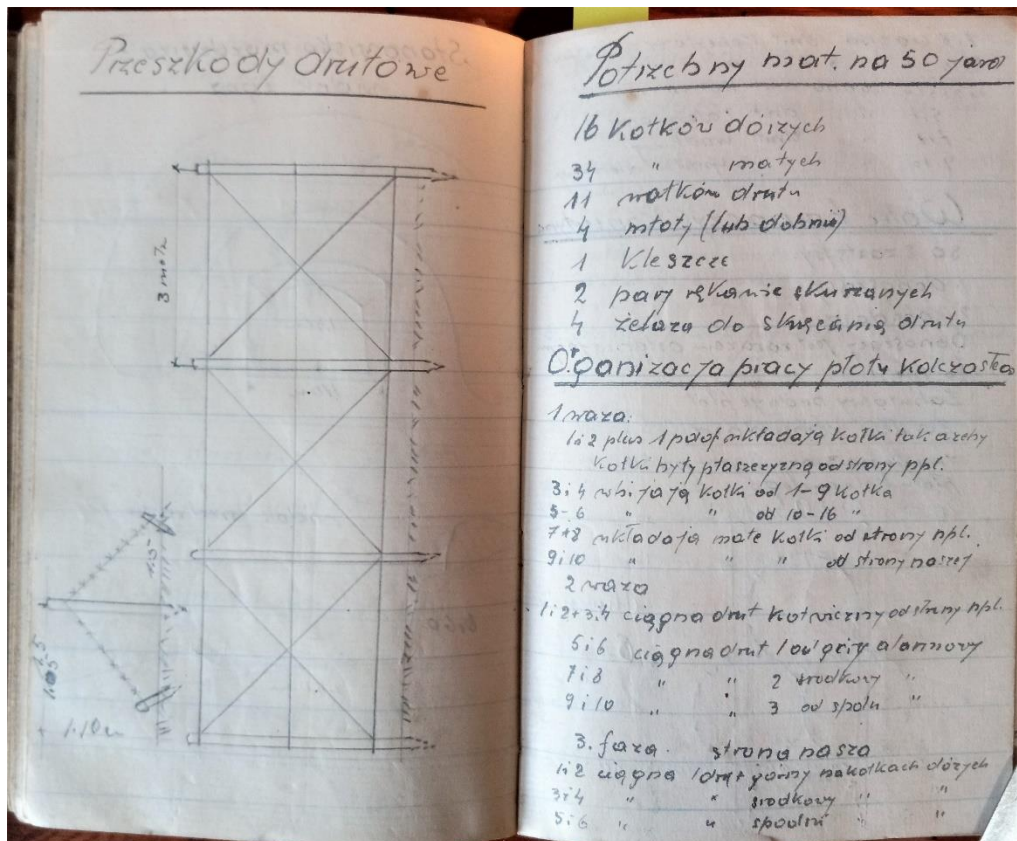 Przeszkody drutowe
3 motr
1.05
1.10 m
Potrzebny mat. na 50 jard
16 Kołków dóżych
34 " małych
11 wałków drutu
4 młoty (lub dobnie)
1 Kleszcze
2 pary rękawic skurzanych
4 żelaza do skręcania drutu
Organizacja pracy płotu Kolczastego
1 waza.
1i2 plus 1 podof układają kołki tak ażeby
kołki były płaszczyzną od strony npl.
3i4 wbijają kołki od 1-9 kołka
5-6 " " od 10-16 "
7+8 układają małe kołki od strony npl.
9i10 " " " od strony naszej
2 waza
1i2+3i4 ciągną drut kotwiczny od strony npl.
5i6 ciągną drut 1 alarmowy
7i8 " " 2 środkowy "
9i10 " " 3 od spodu "
3. faza. strona nasza
1i2 ciągną 1 drut górny na kołkach dóżych
3i4 " " środkowy " "
5i6 " " spodni " "